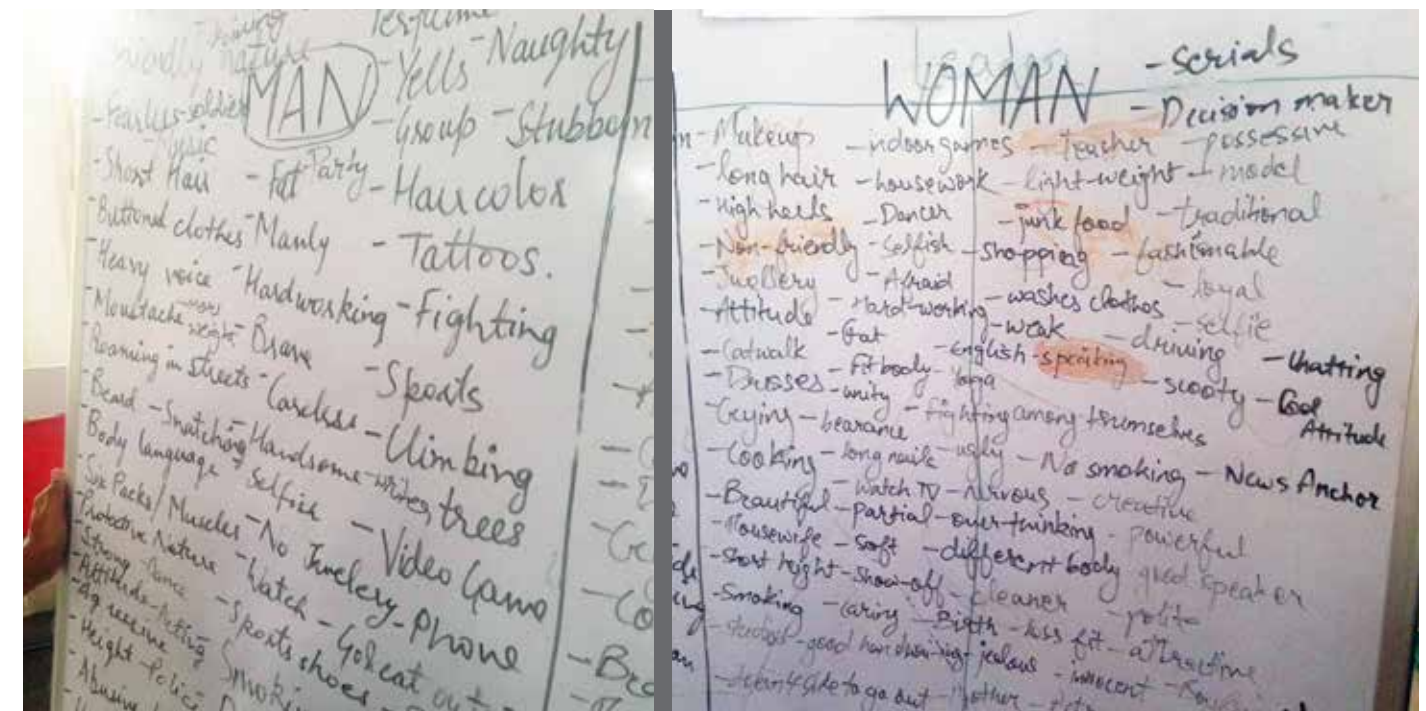 Friendly nature
MAN
- Yells - Naughty
- Fearless - soldier
- Group - Stubborn
Music
- Short Hair - Fat - Party - Hair color
- Buttoned clothes - Manly - Tattoos.
- Heavy voice - Hardworking - Fighting
- Moustache - more weight - Brave - Sports
- Roaming in streets - Careless - Climbing trees
- Beard - Snatching - Handsome
- Body language - Selfish - Video Game
- Six Packs/Muscles - No Jewelery - Phone
- Protective Nature - Watch - Go & eat out
- Strong - Dance - Sports shoes
- Attitude - Acting
- Height - Police
WOMAN
- Serials
- Decision maker
- Makeup - indoor games - teacher - possessive
- long hair - housework - light-weight - model
- High heels - Dancer - junk food - traditional
- Non-friendly - Selfish - Shopping - fashionable
- Jwellery - Afraid - washes clothes - loyal
- Attitude - Hard-working - weak - selfie
- Catwalk - Fat - English-speaking - driving - Chatting
- Dresses - Fit body - Yoga - scooty - Cool Attitude
- Crying - unity - fighting among themselves
- Cooking - bearance - long nails - ugly - No smoking - News Anchor
- Beautiful - watch TV - nervous - creative
- Housewife - partial - over thinking - powerful
- Short height - soft - different body - good speaker
- Smoking - show-off - cleaner - polite
- caring - Birth - less fit - attractive
- good handwriting - jealous - innocent
- doesn't like to go out - Mother